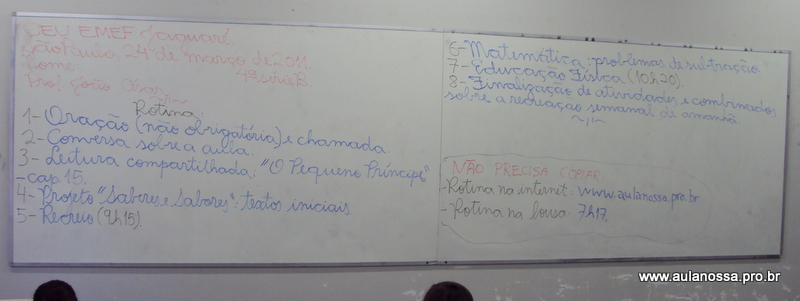 CEU EMEF Jaguaré.
São Paulo, 24 de março de 2011.
Nome 4ª série B
Prof. João
Rotina
1- Oração (não obrigatória) e chamada.
2- Conversa sobre a aula.
3- Leitura compartilhada: "O Pequeno Príncipe"
-cap. 15.
4- Projeto "Saberes e Sabores": textos iniciais
5- Recreio (9h15).
6- Matemática: problemas de subtração.
7- Educação Física (10h20).
8- Finalização de atividades e combinados
sobre a recreação semanal de amanhã.
NÃO PRECISA COPIAR
-Rotina na internet: www.aulanossa.pro.br
-Rotina na lousa: 7h17.
www.aulanossa.pro.br